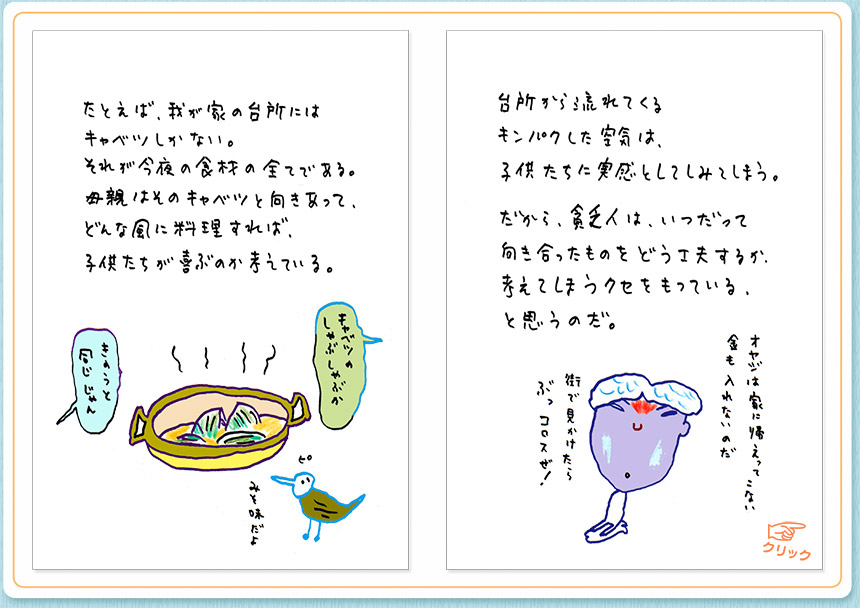 たとえば、我が家の台所には
キャベツしかない。
それが今夜の食材の全てである。
母親はそのキャベツと向きあって、
どんな風に料理すれば、
子供たちが喜ぶのか考えている。
キャベツの
しゃぶしゃぶか
きのうと
同じじゃん
ピ
みそ味だよ
台所から流れてくる
キンパクした空気は、
子供たちに実感としてしみてしまう。
だから、貧乏人は、いつだって
向き合ったものをどう工夫するか、
考えてしまうクセをもっている、
と思うのだ。
オヤジは家に帰えってこない
金も入れないのだ
街で見かけたら
ぶっコロスぜ!
クリック